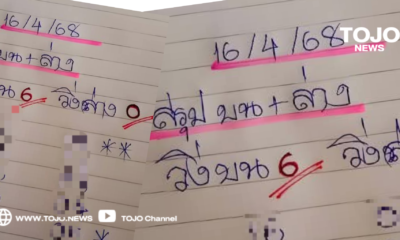 TOJO
NEWS
16/4/68
บน+ล่าง
บน 6 วิ่งล่าง 0
**
16/4/68
สรุป บน+ล่าง
วิ่งบน 6 วิ่ง
WWW.TOJO.NEWS
TOJO Channel